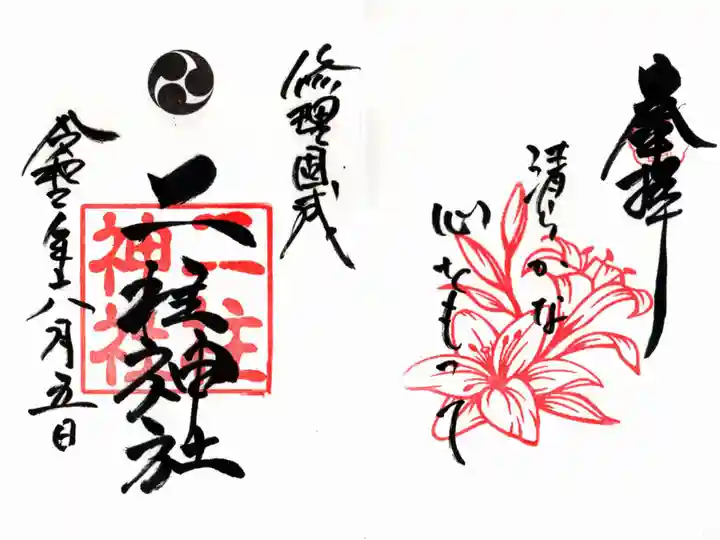 奉拝
清らかな
心をもって
修理固成
二柱神社
二柱
神社
令和二年八月五日